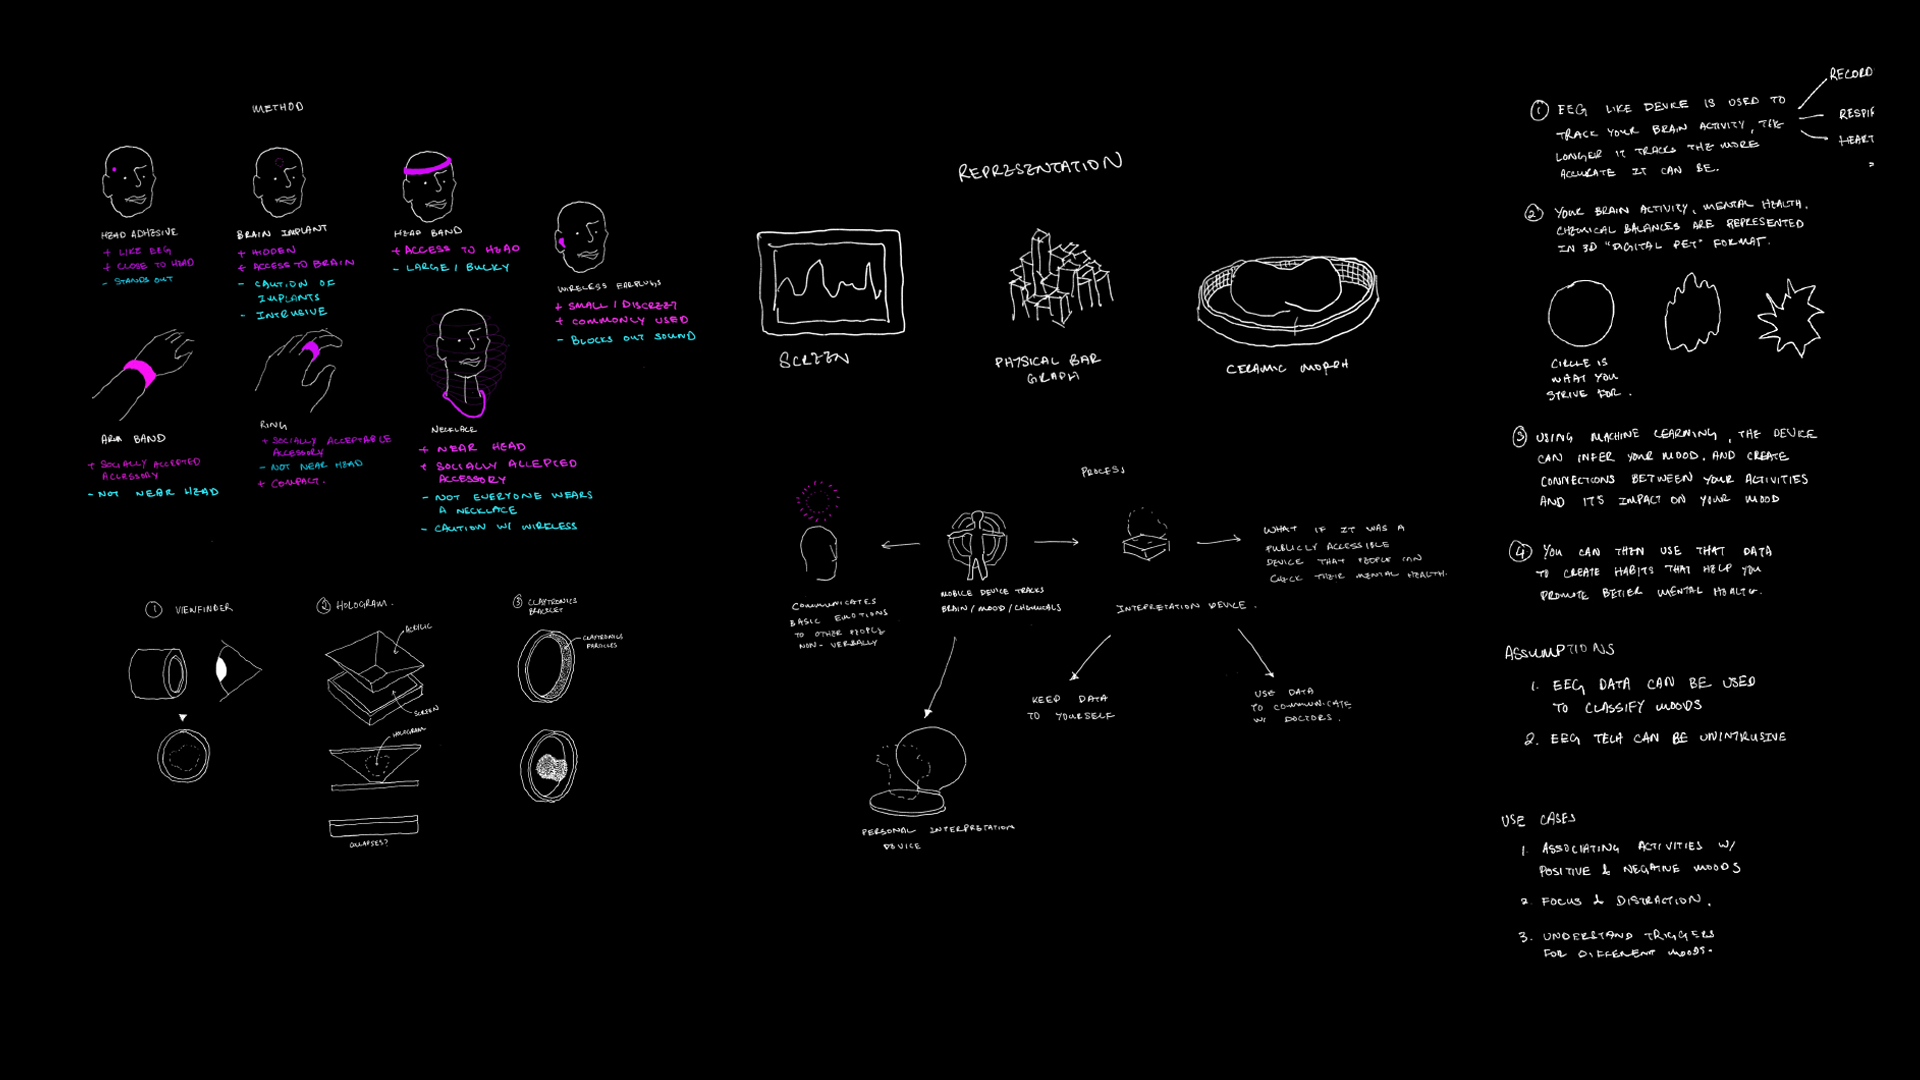 METHOD
HEAD ADHESIVE
+ LIKE EEG
+ CLOSE TO HEAD
- STANDS OUT
BRAIN IMPLANT
+ HIDDEN
+ ACCESS TO BRAIN
- CAUTION OF
IMPLANTS
- INTRUSIVE
HEAD BAND
+ ACCESS TO HEAD
- LARGE / BULKY
WIRELESS EARPLUGS
+ SMALL / DISCREET
+ COMMONLY USED
- BLOCKS OUT SOUND
ARM BAND
+ SOCIALLY ACCEPTED
ACCESSORY
- NOT NEAR HEAD
RING
+ SOCIALLY ACCEPTABLE
ACCESSORY
- NOT NEAR HEAD
+ COMPACT.
NECKLACE
+ NEAR HEAD
+ SOCIALLY ACCEPTED
ACCESSORY
- NOT EVERYONE WEARS
A NECKLACE
- CAUTION W/ WIRELESS
① VIEWFINDER
② HOLOGRAM.
ACRYLIC
SCREEN
HOLOGRAM
GLASSES?
③ CLAYTRONICS
BRACELET
CLAYTRONICS
PARTICLES
REPRESENTATION
SCREEN
PHYSICAL BAR
GRAPH
CERAMIC MORPH
PROCESS
COMMUNICATES
BASIC EMOTIONS
TO OTHER PEOPLE
NON-VERBALLY
MOBILE DEVICE TRACKS
BRAIN / MOOD / CHEMICALS
INTEPRETATION DEVICE.
WHAT IF IT WAS A
PUBLICLY ACCESSIBLE
DEVICE THAT PEOPLE CAN
CHECK THEIR MENTAL HEALTH.
KEEP DATA
TO YOURSELF
USE DATA
TO COMMUNICATE
W/ DOCTORS.
PERSONAL INTERPRETATION
DEVICE
① EEG LIKE DEVICE IS USED TO
TRACK YOUR BRAIN ACTIVITY, THE
LONGER IT TRACKS THE MORE
ACCURATE IT CAN BE.
RECORD
RESPIR
HEART
② YOUR BRAIN ACTIVITY, MENTAL HEALTH.
CHEMICAL BALANCES ARE REPRESENTED
IN 3D "DIGITAL PET" FORMAT.
CIRCLE IS
WHAT YOU
STRIVE FOR.
③ USING MACHINE LEARNING, THE DEVICE
CAN INFER YOUR MOOD. AND CREATE
CONNECTIONS BETWEEN YOUR ACTIVITIES
AND IT'S IMPACT ON YOUR MOOD
④ YOU CAN THEN USE THAT DATA
TO CREATE HABITS THAT HELP YOU
PROMOTE BETTER MENTAL HEALTH.
ASSUMPTIONS
1. EEG DATA CAN BE USED
TO CLASSIFY MOODS
2. EEG TECH CAN BE UNINTRUSIVE
USE CASES
1. ASSOCIATING ACTIVITIES W/
POSITIVE & NEGATIVE MOODS
2. FOCUS & DISTRACTION.
3. UNDERSTAND TRIGGERS
FOR DIFFERENT MOODS.